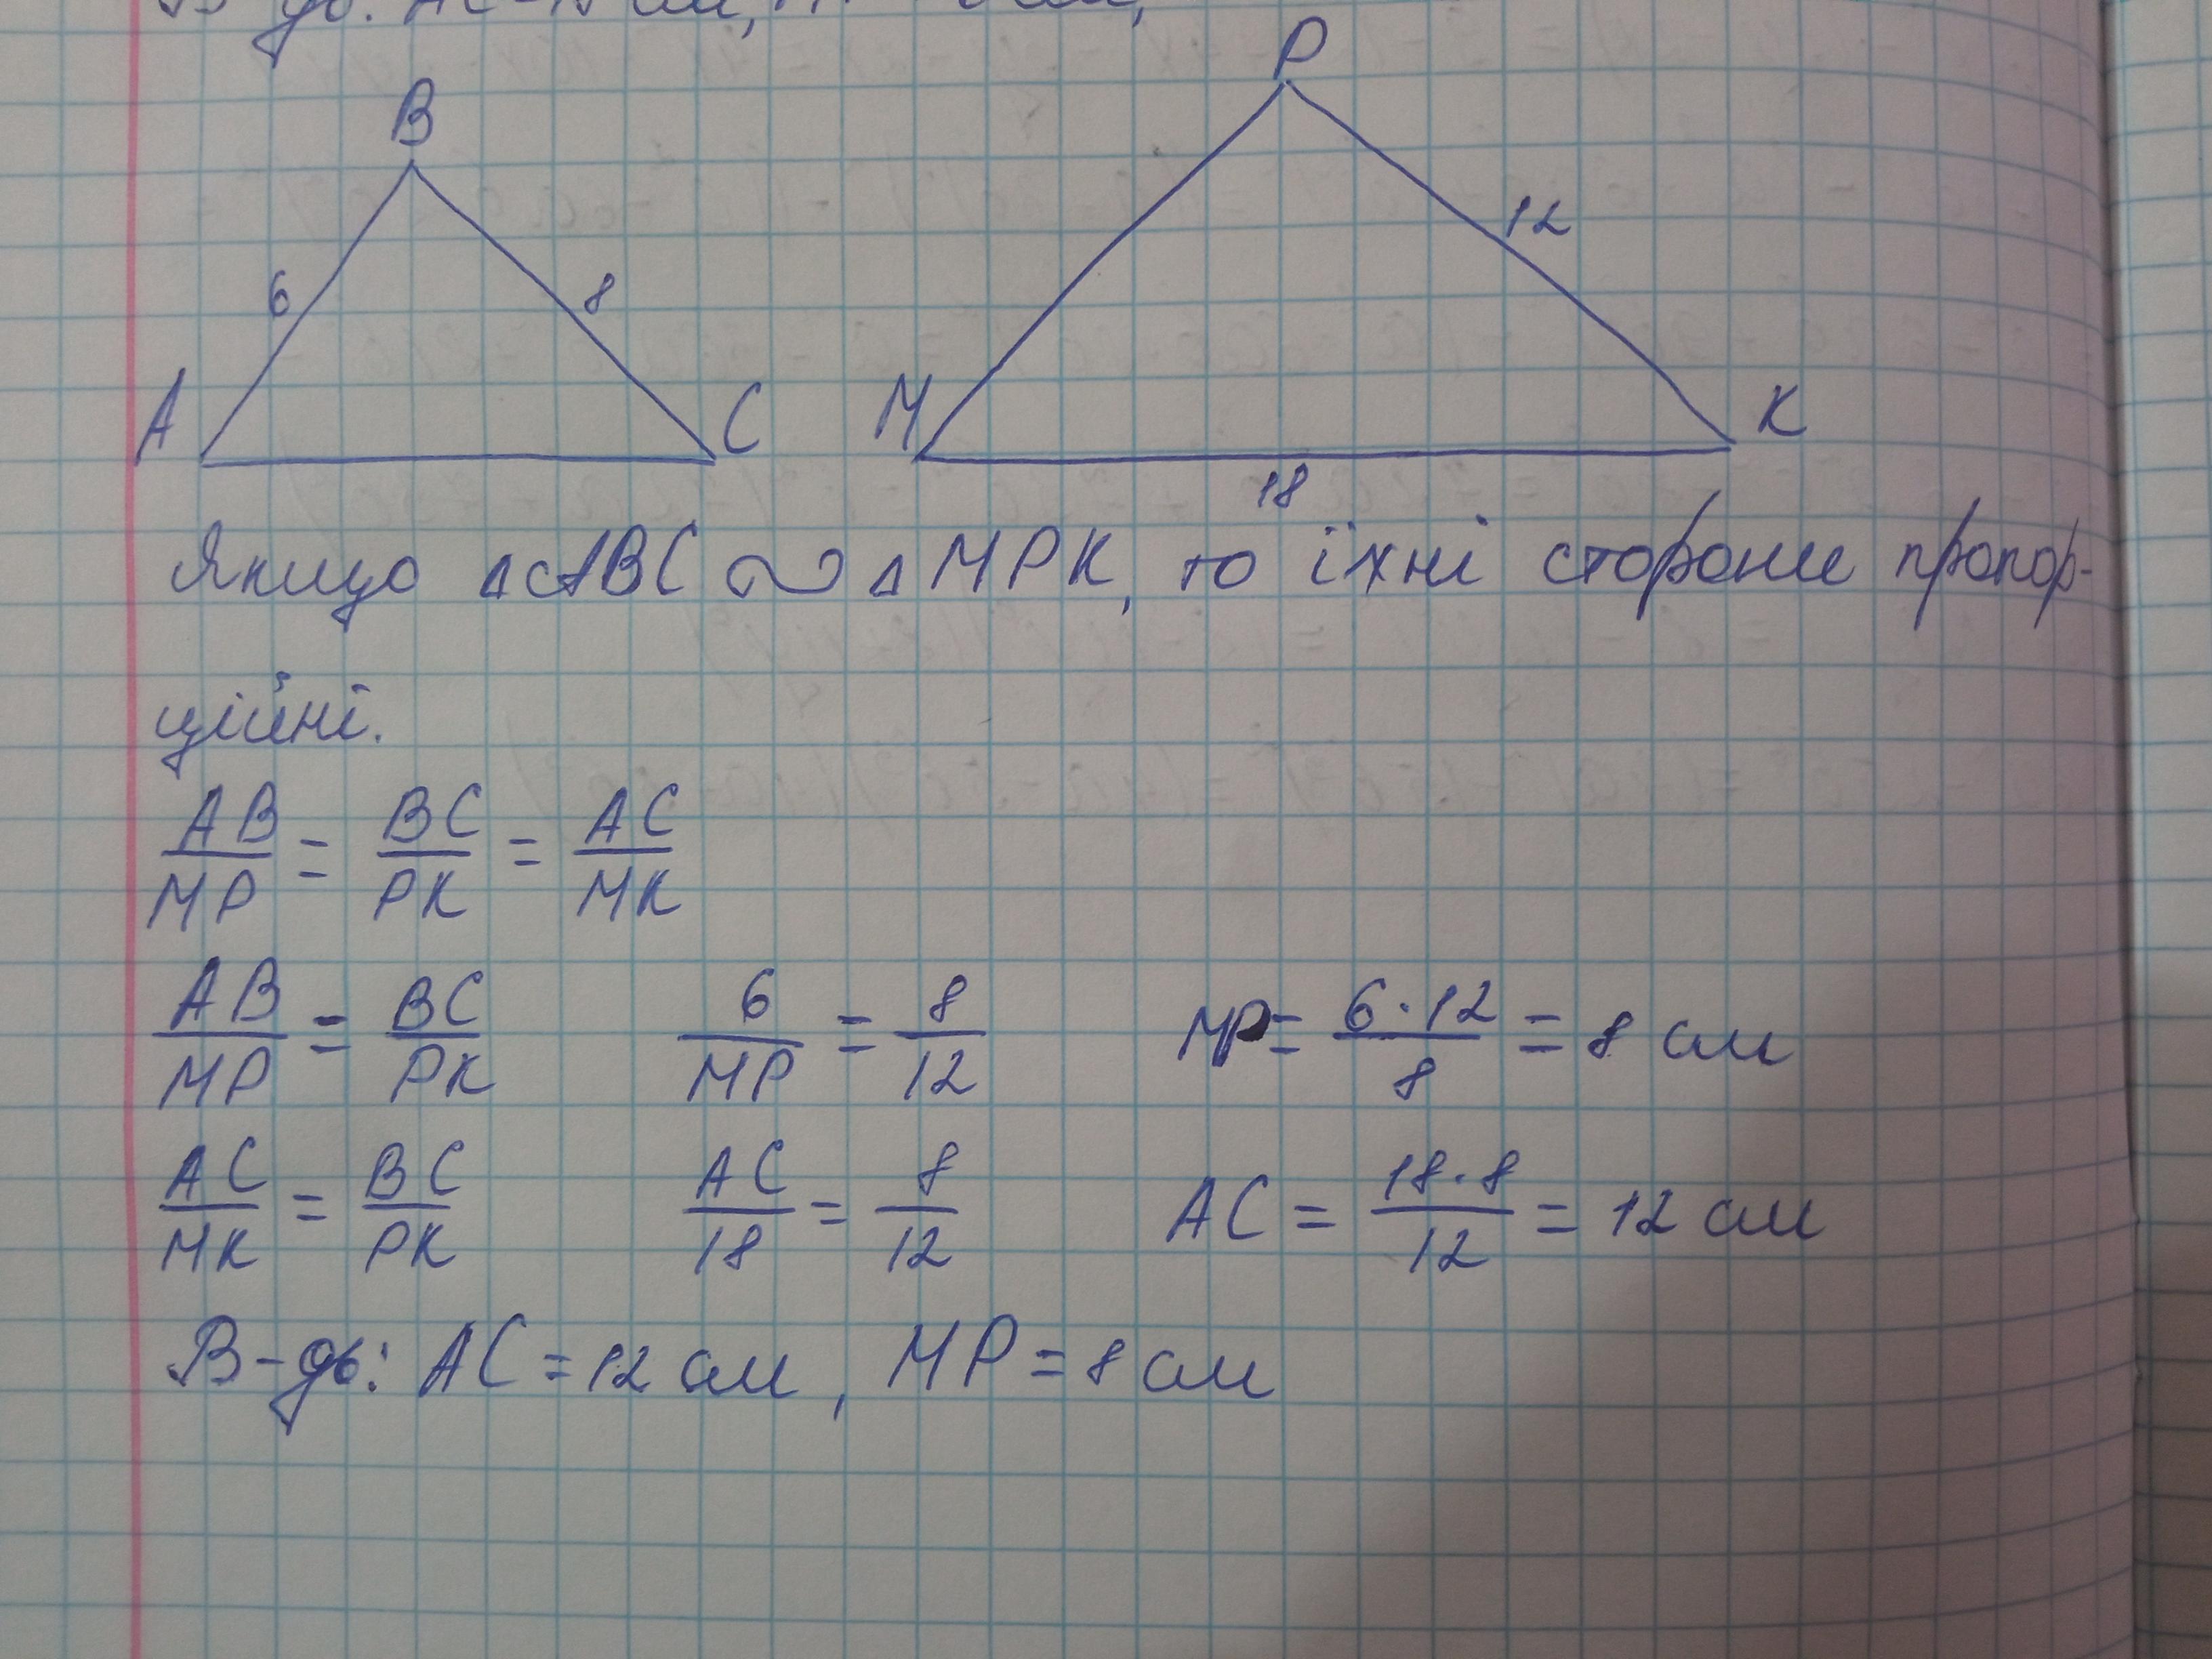 P
B
12
6 8
A C M K
18
Якщо ΔABC ∾ ΔMPK, то їхні сторони пропор-
ційні.
AB/MP = BC/PK = AC/MK
AB/MP = BC/PK 6/MP = 8/12 MP = 6·12/8 = 8 см
AC/MK = BC/PK AC/18 = 8/12 AC = 18·8/12 = 12 см
В-дь: AC = 12 см, MP = 8 см